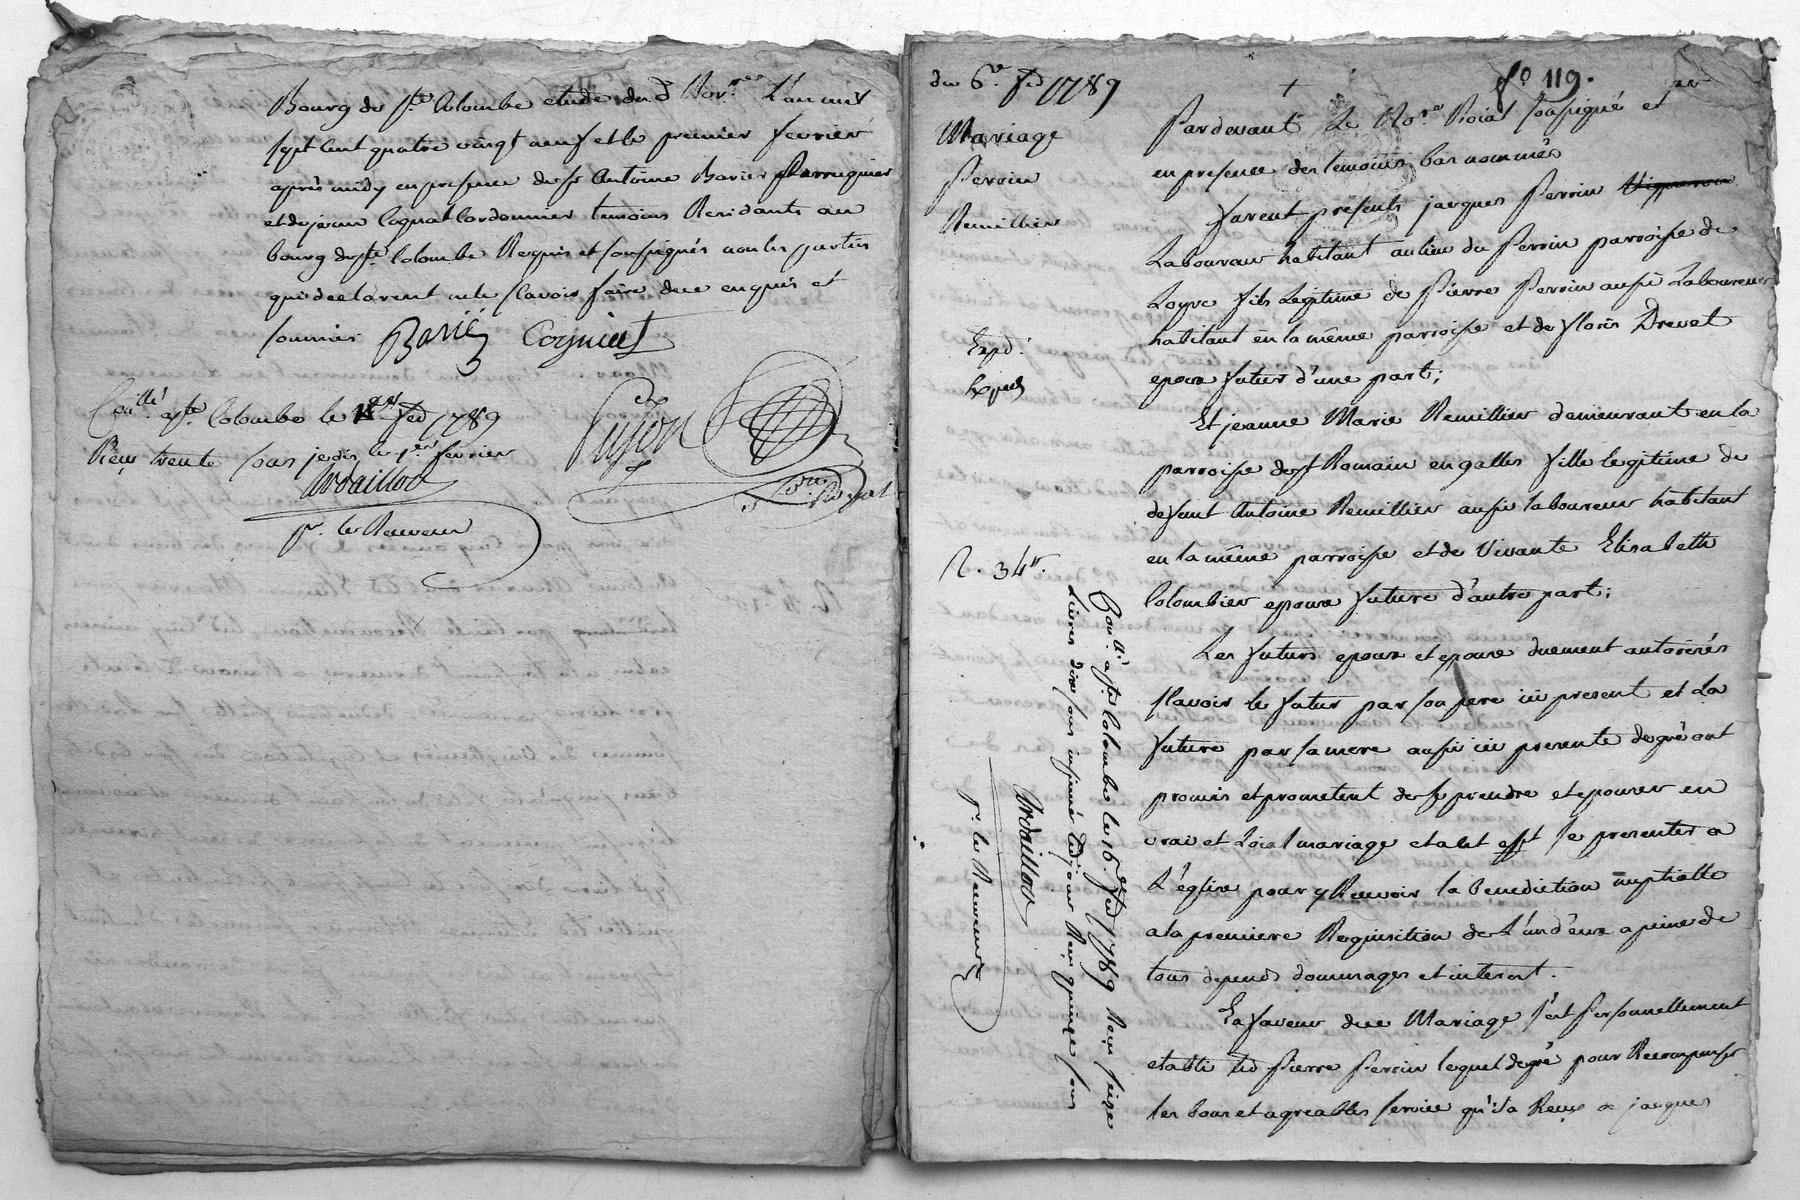 Bourg de Ste Colombe etude dud Nore. L'an mil
sept cent quatre vingt neuf et le premier fevrier
après midy en presence de sr Antoine Barier Perruquier
et de jean Cognat Cordonnier temoins Residants au
bourg de ste Colombe Requis et soussignés non les parties
qui declarent ne le sçavoir faire de ce enquis et
sommés. Barié Cognat
Coll.é a ste Colombe le 1er fed 1789
Reçu trente sous jedis le 1er fevrier
Ardaillod
pr le Receveur
Pujon
Nore Royal
du 6e fed 1789
Mariage
Perrin
Remillier
Expd:
N. 34tt.
Coll.é a ste Colombe le 16 fed 1789 Reçu seize
Livres dix sous insinué led jour Reçu quinze sous
Ardaillod
pr le Receveur
fo 119.
Pardevant Le Nore Roial soussigné et
en presence des temoins bas nommés
furent présents jacques Perrin Vigneron
Laboureur habitant au lieu du Perrin parroisse de
Loyre fils Legitime de Pierre Perrin aussi Laboureur
habitant en la même parroisse et de floris Drevet
epoux futur d'une part;
Et jeanne Marie Remillier demeurant en la
parroisse de st Romain en galles fille legitime de
defunt Antoine Remillier aussi laboureur habitant
en la même parroisse et de Vivante Elisabeth
Colombier epouse future d'autre part;
Les futurs epoux et epouse duement autorisés
sçavoir le futur par son pere ici present et La
future par sa mere aussi ici presente de gré ont
promis et prometent de se prendre et epouser en
vrai et Loial mariage et a cet efft se presenter a
L'église pour y Recevoir la benediction nuptialle
a la premiere Requisition de L'un d'eux a peine de
tous depends dommages et interest.
En faveur de ce Mariage s'est Personnellement
etabli led Pierre Perrin lequel de gré pour Recompenser
les bons et agreables service qu'il a Reçu de jacques